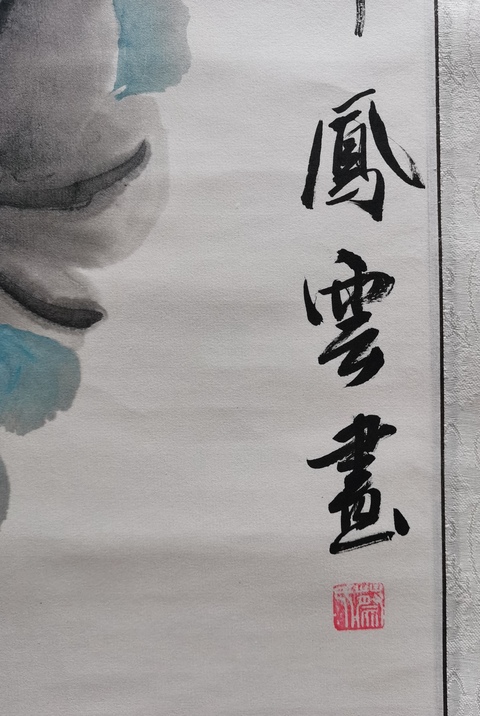 鳳雲畫